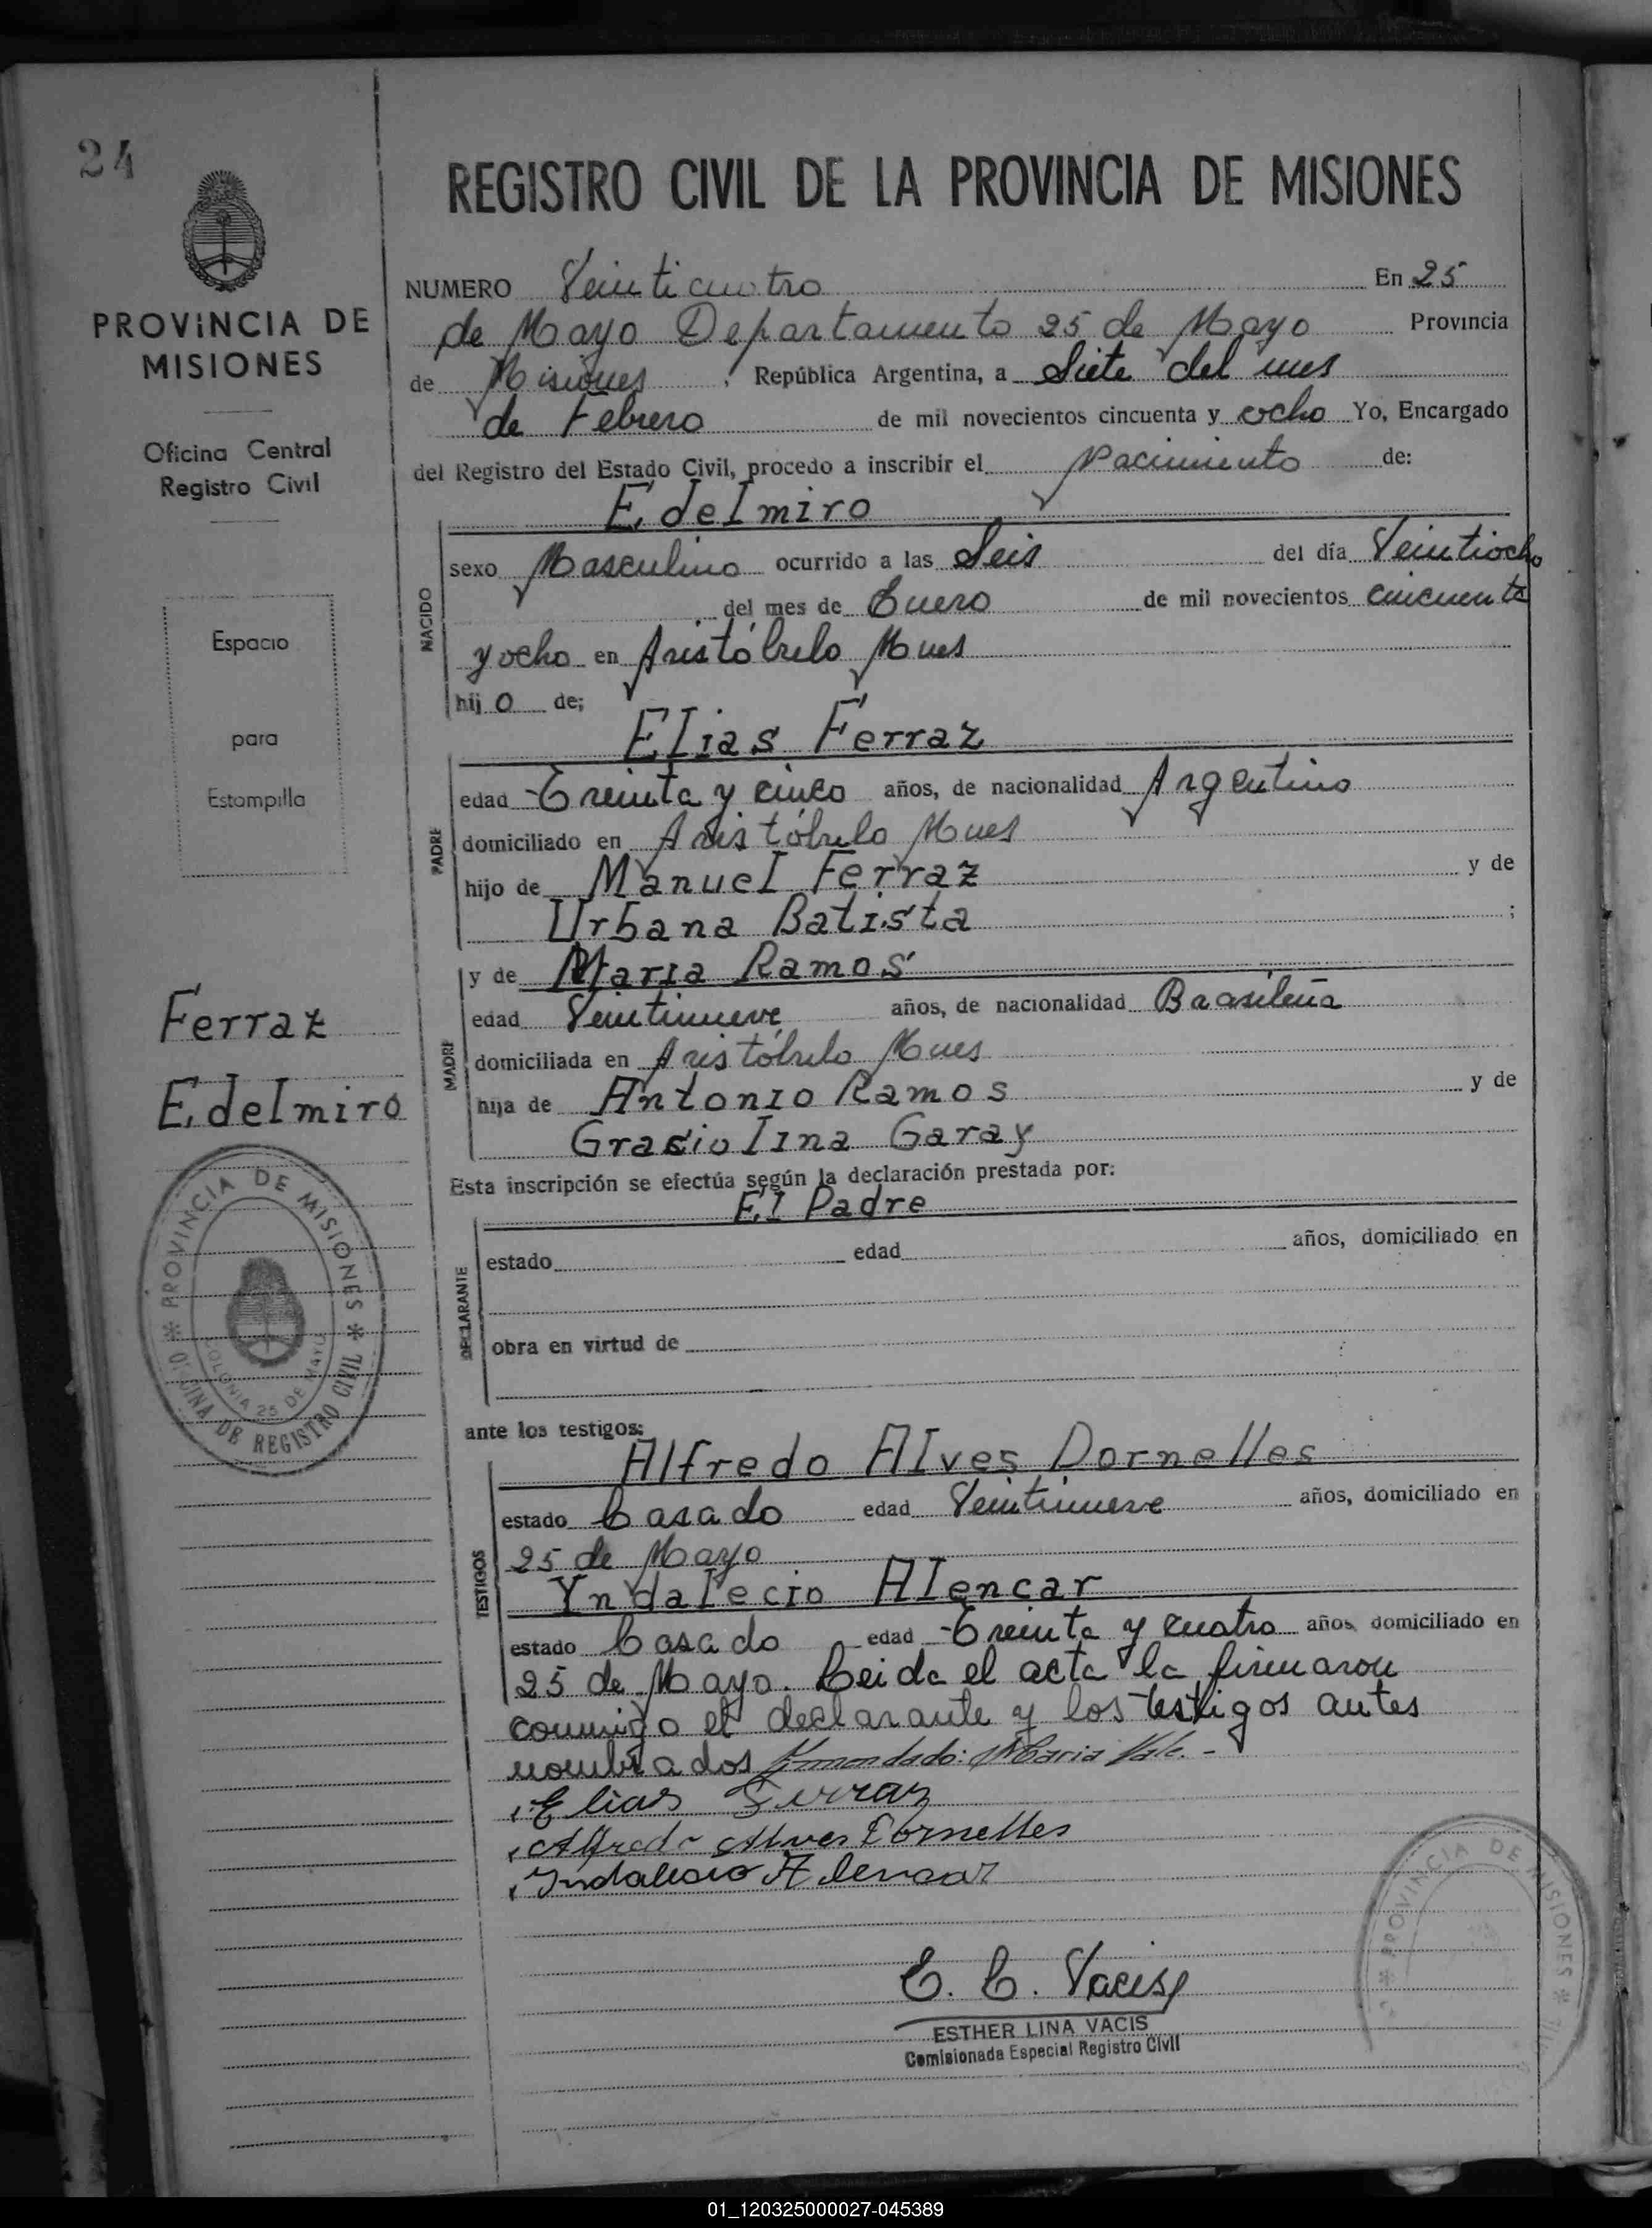 24
REGISTRO CIVIL DE LA PROVINCIA DE MISIONES
PROVINCIA DE
MISIONES
Oficina Central
Registro Civil
Espacio
para
Estampilla
Ferraz
Edelmiro
PROVINCIA DE MISIONES
OFICINA DE REGISTRO CIVIL
COLONIA 25 DE MAYO
NUMERO Veinticuatro En 25
de Mayo Departamento 25 de Mayo Provincia
de Misiones, República Argentina, a Siete del mes
de Febrero de mil novecientos cincuenta y ocho Yo, Encargado
del Registro del Estado Civil, procedo a inscribir el Nacimiento de:
Edelmiro
NACIDO
sexo Masculino ocurrido a las Seis del día Veintiocho
del mes de Enero de mil novecientos cincuenta
y ocho en Aristóbulo Mues
hijo de;
Elias Ferraz
PADRE
edad Treinta y cinco años, de nacionalidad Argentino
domiciliado en Aristóbulo Mues
hijo de Manuel Ferraz y de
Urbana Batista ;
MADRE
y de Maria Ramos
edad Veintinueve años, de nacionalidad Brasileña
domiciliada en Aristóbulo Mues
hija de Antonio Ramos y de
Graciolina Garay
Esta inscripción se efectúa según la declaración prestada por:
El Padre
DECLARANTE
estado edad años, domiciliado en
obra en virtud de
ante los testigos:
Alfredo Alves Dornelles
TESTIGOS
estado Casado edad Veintinueve años, domiciliado en
25 de Mayo
Yndalecio Alencar
estado Casado edad Treinta y cuatro años domiciliado en
25 de Mayo. Leida el acta la firmaron
conmigo el declarante y los testigos antes
nombrados Enmendado: Maria Vale.-
Elias Ferraz
Alfredo Alves Dornelles
Indalecio Alencar
E. L. Vacis
ESTHER LINA VACIS
Comisionada Especial Registro Civil
PROVINCIA DE MISIONES
01_120325000027-045389